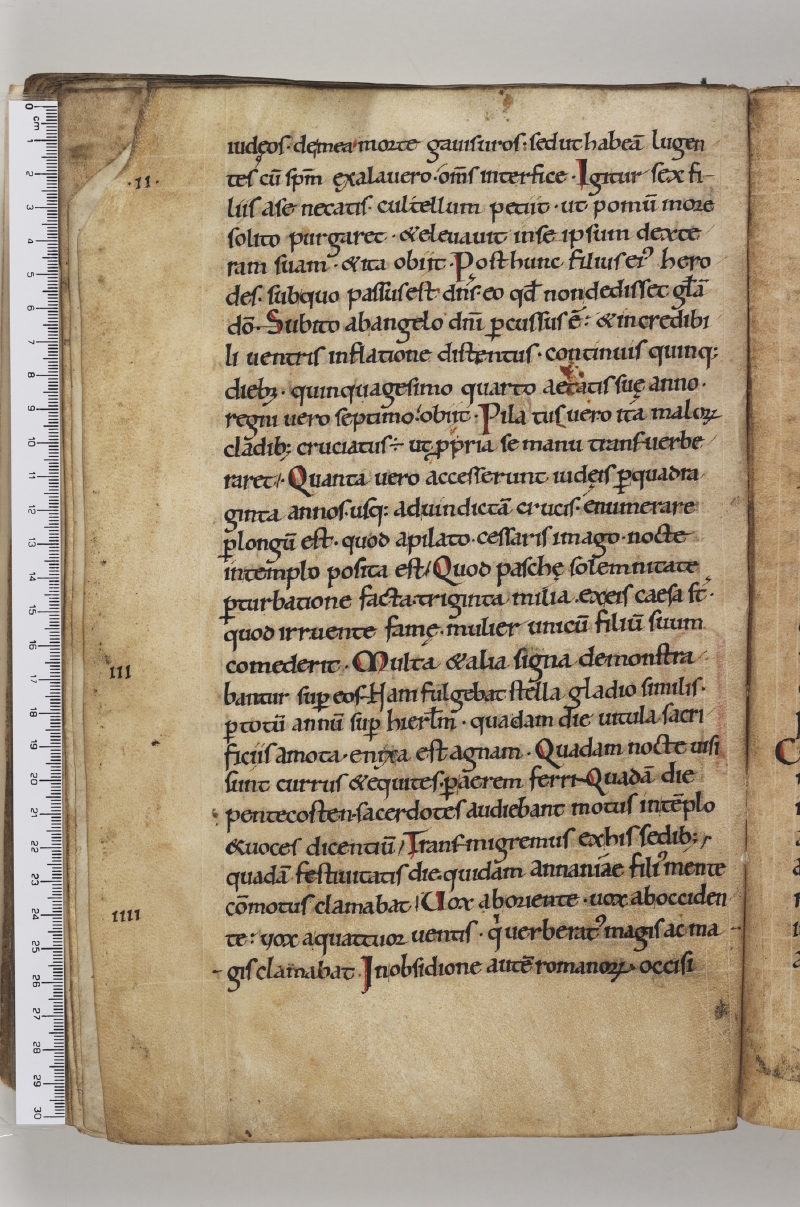 iudęos de mea morte gauisuros· sed ut habeā lugen
·II·
tes cū sp̄m exalauero· om̄s interfice· Igitur sex fi-
liis a se necatis· cultellum petiit· ut pomū more
solito purgaret· & eleuauit in se ipsum dexte
ram suam· & ita obiit· Post hunc filius ei᷒ hero
des· sub quo passus est dn̄s· eo qd̄ non dedisset gl̄ā
dō· Subito ab angelo dn̄i ꝑcussus ē: & incredibi
li uentris inflatione distentus· continuis quinq:
dieb;· quinquagesimo quarto aetatis suę anno·
regni uero septimo· obiit· Pilatus uero ita maloꝝ
cladib; cruciatus ÷ ut ꝓpria se manu transuerbe
raret· Quanta uero accesserunt iudęis ꝑ quadra
ginta annos· usq: ad uindictā crucis· enumerare
ꝓlongū est· quod a pilato· cessaris imago· nocte
in templo posita est· Quod paschę solemnitate
ꝑturbatione facta· triginta milia ex eis caesa st̄·
quod irruente fame· mulier unicū filiū suum
III
comederit· Multa & alia signa demonstra
bantur suꝑ eos· Nam fulgebat stella gladio similis·
ꝑ totū annū suꝑ hierl̄m· quadam die uitula sacri
ficiis amota· enixa est agnam· Quadam nocte uisi
sunt currus & equites· ꝑ aerem ferri· Quadā die
pentecosten· sacerdotes audiebant motus in tēplo
& uoces dicentiū· Transmigremus ex his sedib;·
quadā festiuitatis die· quidam annaniae fili᷒ mente
cōmotus clamabat· Uox ab oriente· uox ab occiden
IIII
te: uox a quattuor uentis· q̇ uerberat᷒ magis ac ma
gis clamabat· In obsidione autē romanoꝝ· occisi